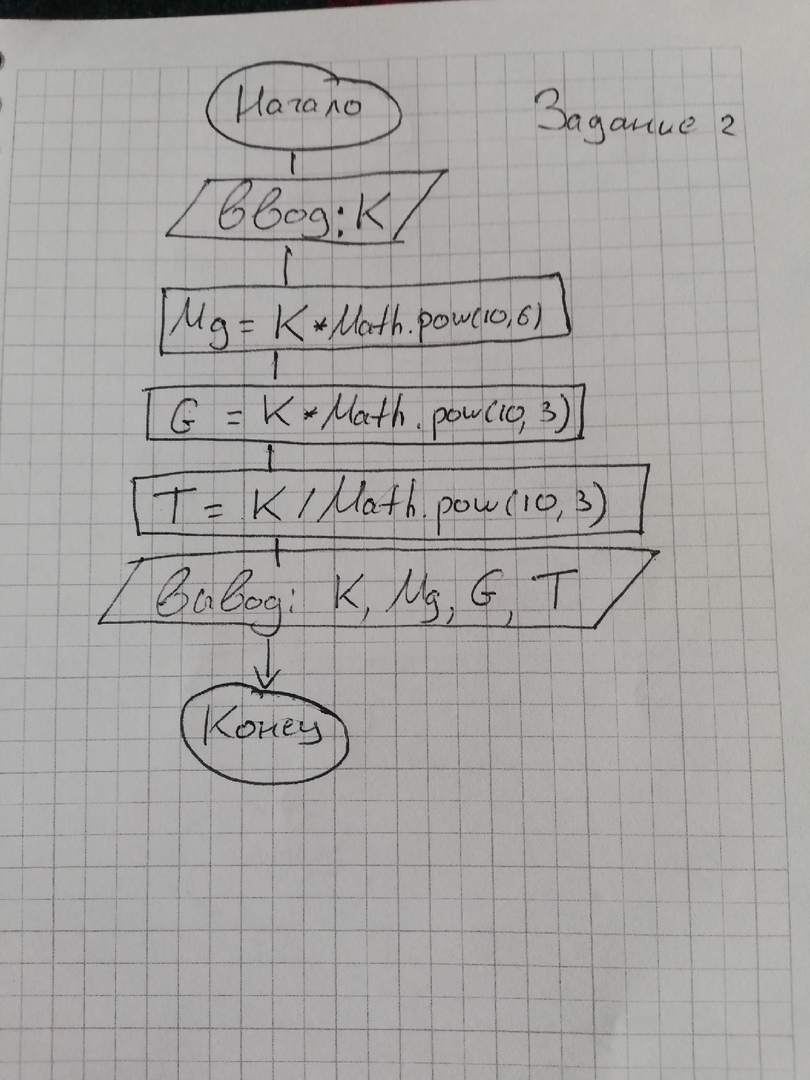 Начало
Задание 2
Ввод: K
Mg = K * Math.pow(10,6)
G = K * Math.pow(10,3)
T = K / Math.pow(10,3)
Вывод: K, Mg, G, T
Конец